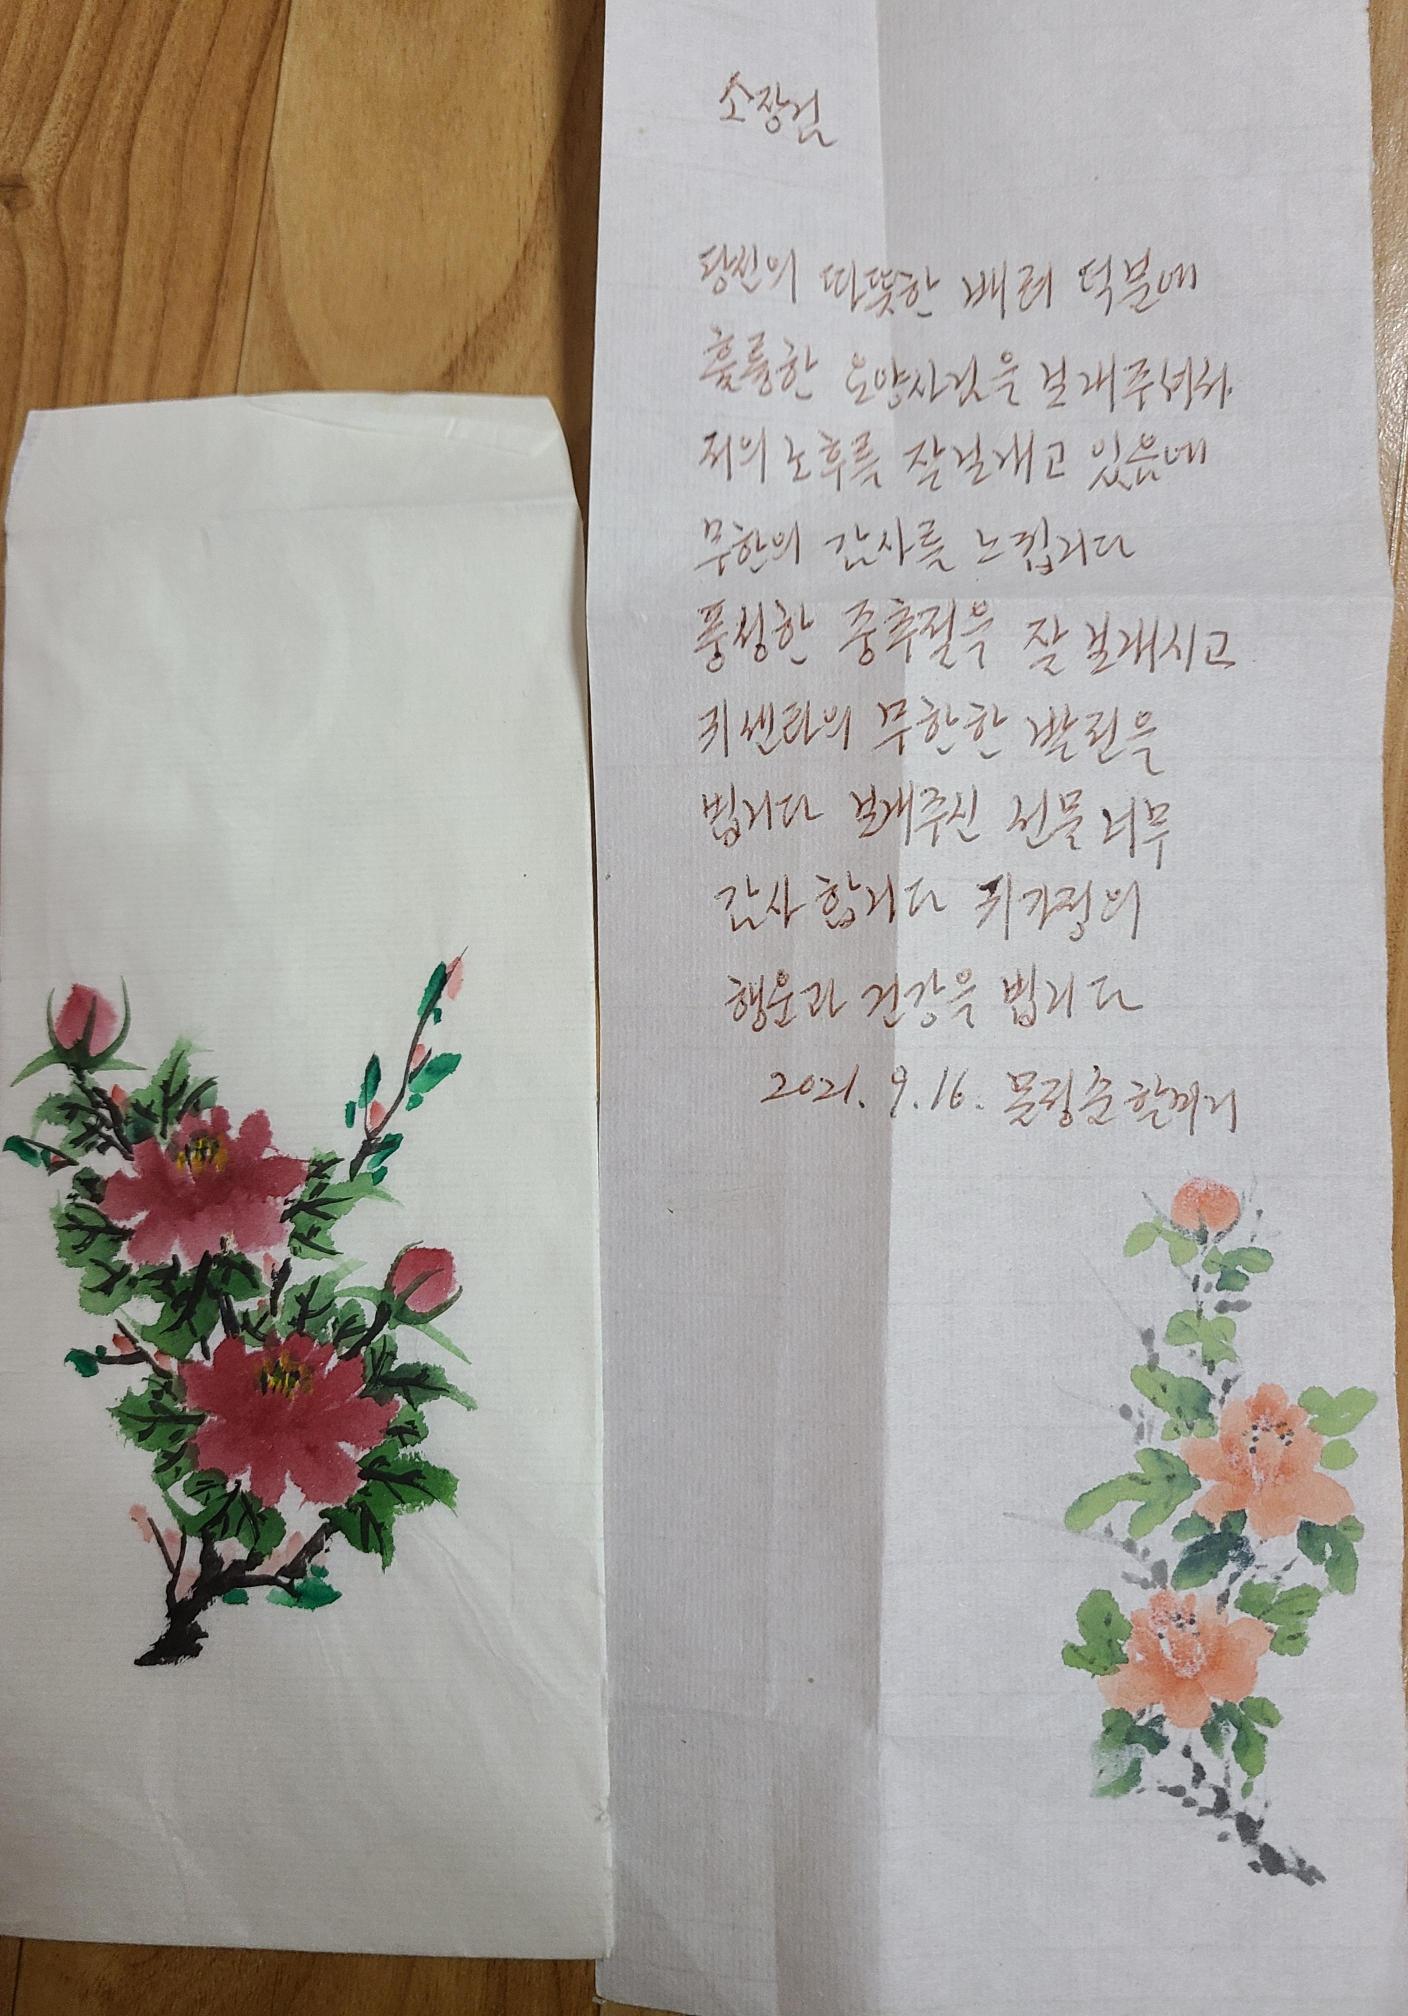 소장님
당신의 따뜻한 배려 덕분에
훌륭한 요양사님을 보내주셔서
저의 노후를 잘 보내고 있음에
무한의 감사를 느낍니다
풍성한 중추절을 잘 보내시고
귀 센타의 무한한 발전을
빕니다 보내주신 선물 너무
감사합니다 귀가정의
행운과 건강을 빕니다
2021. 9. 16. 할머니